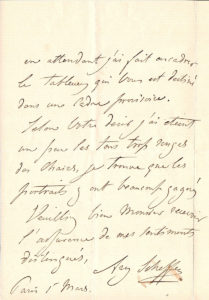 en attendant j'ai fait encadrer
le tableau qui vous est destiné
dans un cadre provisoire.
Selon votre desir j'ai eteint
un peu les tons trop rouges
des chaires, je trouve que les
portraits y ont beaucoup gagné
Veuillez bien Monsieur recevoir
l'assurance de mes sentiments
distingués,
Ary Scheffer
Paris 1 Mars.